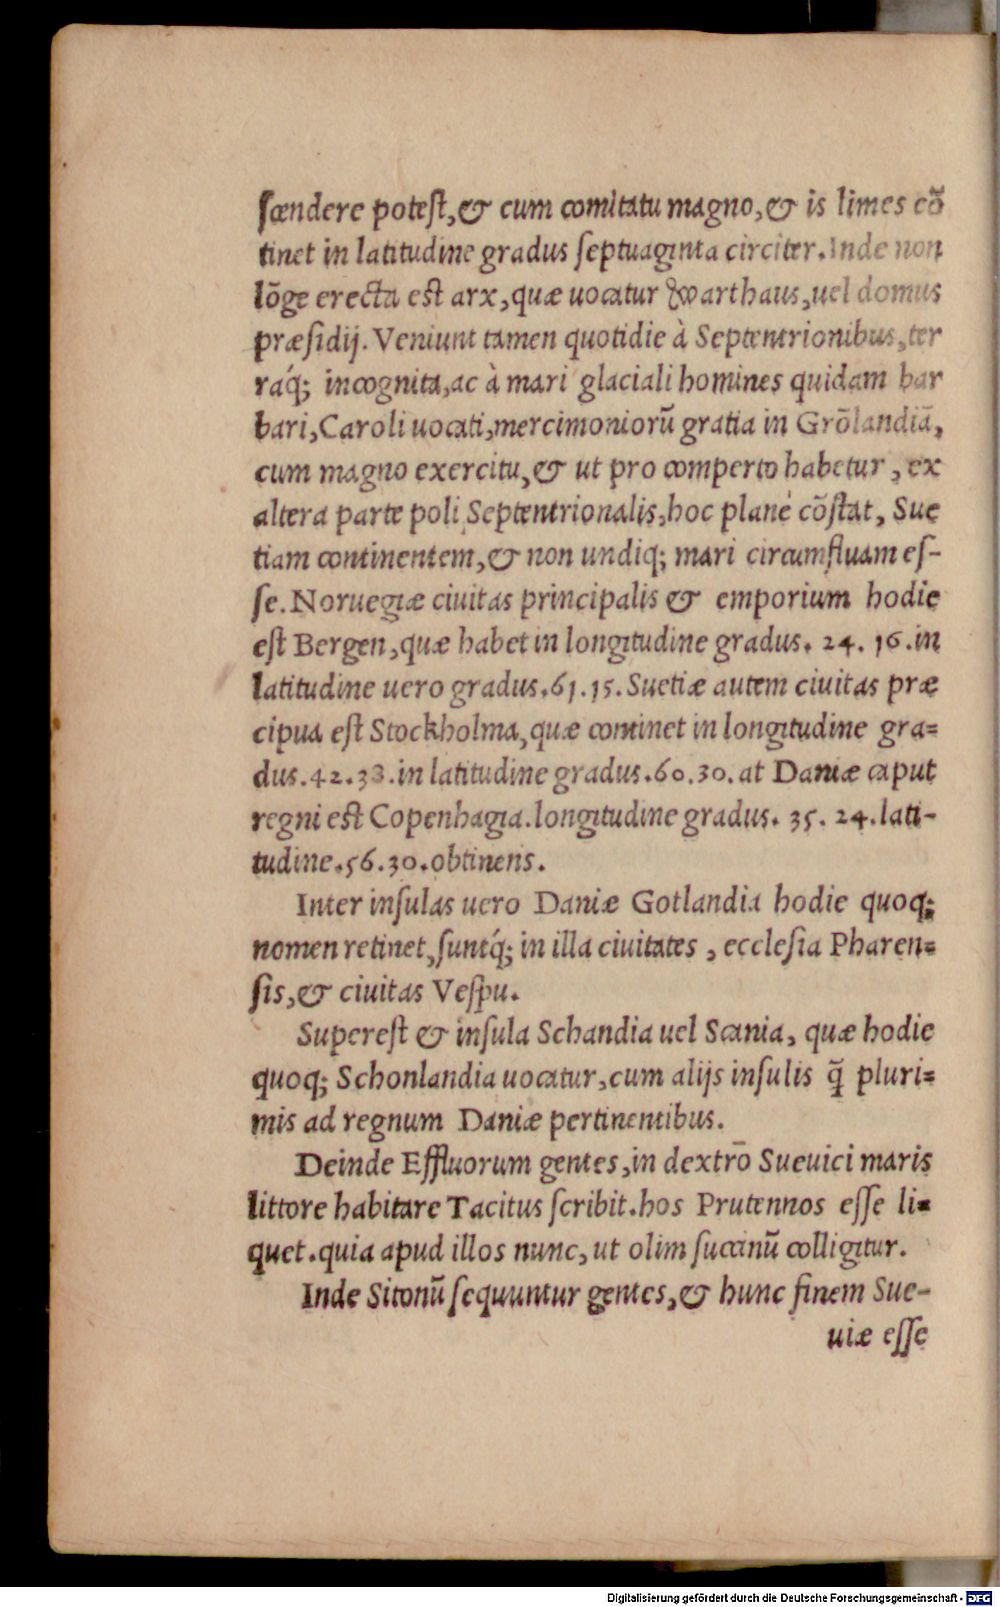 ſcendere poteſt, & cum comitatu magno, & is limes cõ
tinet in latitudine gradus ſeptuaginta circiter. Inde non
lõge erecta eſt arx, quæ uocatur Wwarthaus, uel domus
præſidij. Veniunt tamen quotidie à Septentrionibus, ter
raq́; incognita, ac à mari glaciali homines quidam bar
bari, Caroli uocati, mercimoniorũ gratia in Grõlandiã,
cum magno exercitu, & ut pro comperto habetur, ex
altera parte poli Septentrionalis, hoc planè cõſtat, Sue
tiam continentem, & non undiq; mari circumfluam eſ-
ſe. Noruegiæ ciuitas principalis & emporium hodie
eſt Bergen, quæ habet in longitudine gradus. 24. 16. in
latitudine uero gradus. 61. 15. Suetiæ autem ciuitas præ
cipua eſt Stockholma, quæ continet in longitudine gra=
dus. 42. 38. in latitudine gradus. 60. 30. at Daniæ caput
regni eſt Copenhagia. longitudine gradus. 35. 24. lati-
tudine. 56. 30. obtinens.
Inter inſulas uero Daniæ Gotlandia hodie quoq;
nomen retinet, ſuntq́; in illa ciuitates, eccleſia Pharen=
ſis, & ciuitas Veſpu.
Supereſt & inſula Schandia uel Scania, quæ hodie
quoq; Schonlandia uocatur, cum alijs inſulis q̃ pluri=
mis ad regnum Daniæ pertinentibus.
Deinde Effluorum gentes, in dextrõ Sueuici maris
littore habitare Tacitus ſcribit. hos Prutennos eſſe li=
quet. quia apud illos nunc, ut olim ſuccinũ colligitur.
Inde Sitonũ ſequuntur gentes, & hunc finem Sue-
uiæ eſſe
Digitalisierung gefördert durch die Deutsche Forschungsgemeinschaft - DFG